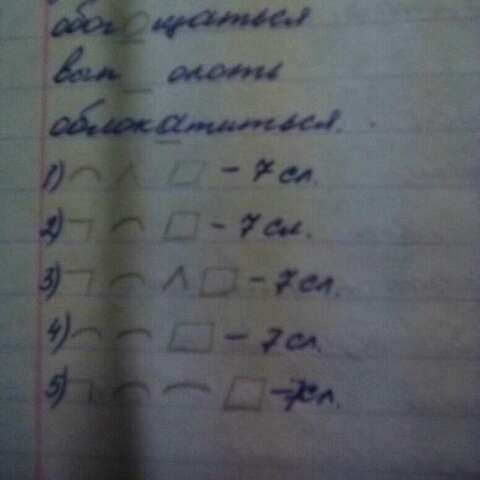 обогощаться
вып_олоть
облокатиться.
1) ⌒ ^ □ - 7 сл.
2) ¬ ⌒ □ - 7 сл.
3) ¬ ⌒ ^ □ - 7 сл.
4) ⌒ ⌒ □ - 7 сл.
5) ¬ ⌒ ⌒ □ - 7 сл.